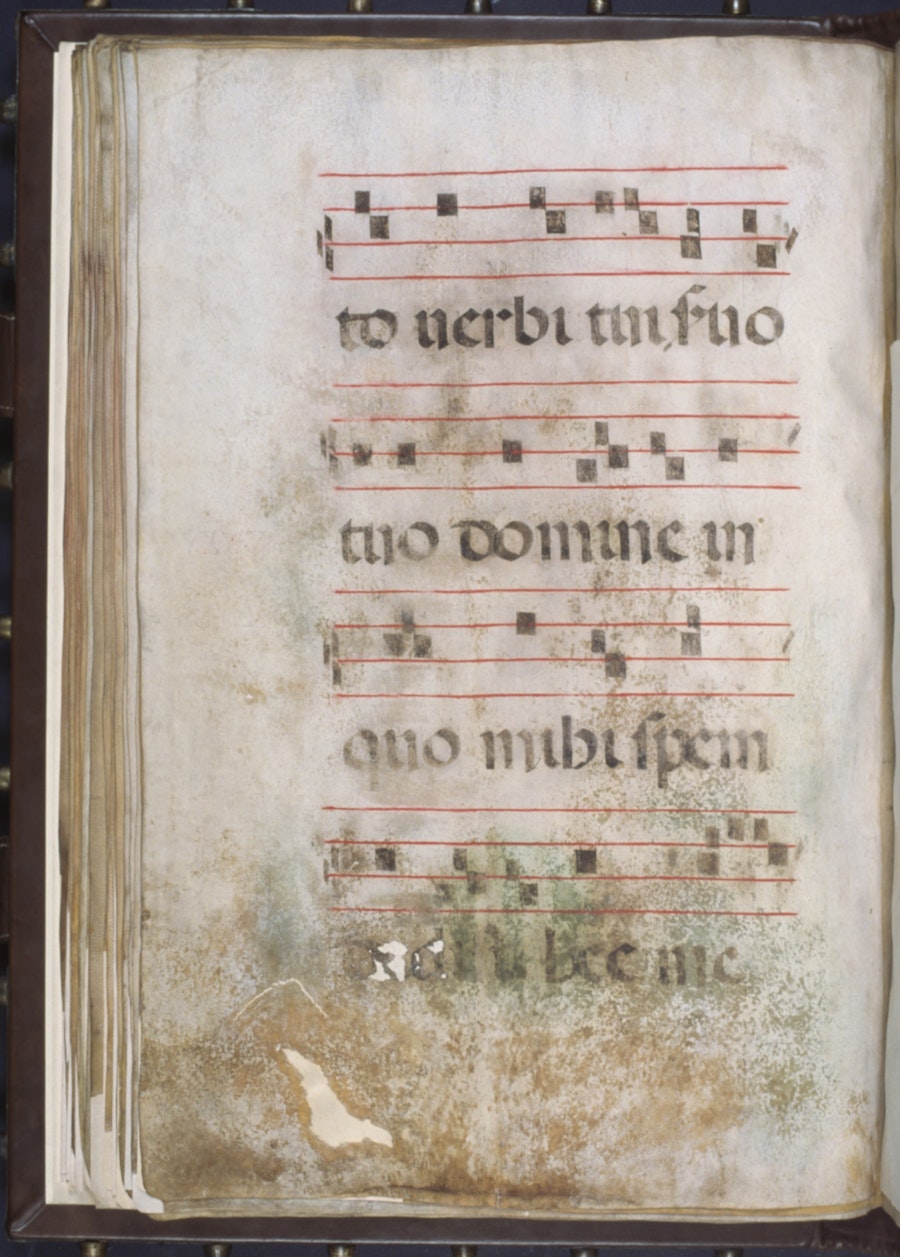 to uerbi tui, suo
tuo domine in
quo mihi spem
dedi hec me